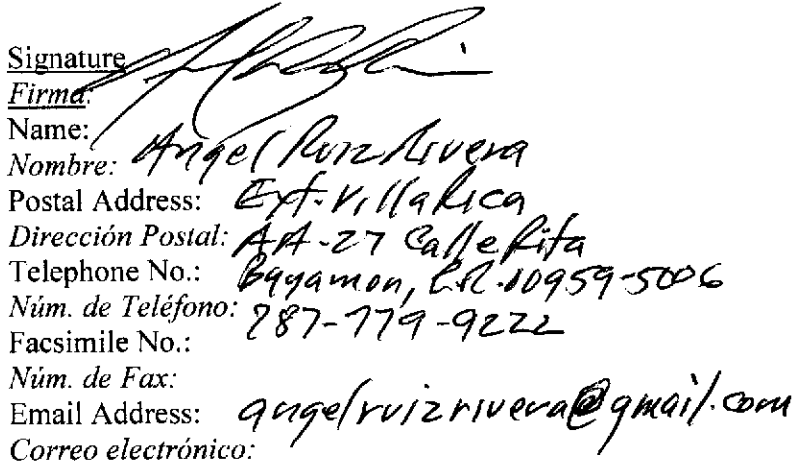 Signature
Firma:
Name:
Nombre: Angel Ruiz Rivera
Postal Address: Ext. Villa Rica
Dirección Postal: AA-27 Calle Rita
Telephone No.: Bayamon, P.R. 00959-5006
Núm. de Teléfono: 787-779-9222
Facsimile No.:
Núm. de Fax:
Email Address: angelruizrivera@gmail.com
Correo electrónico: